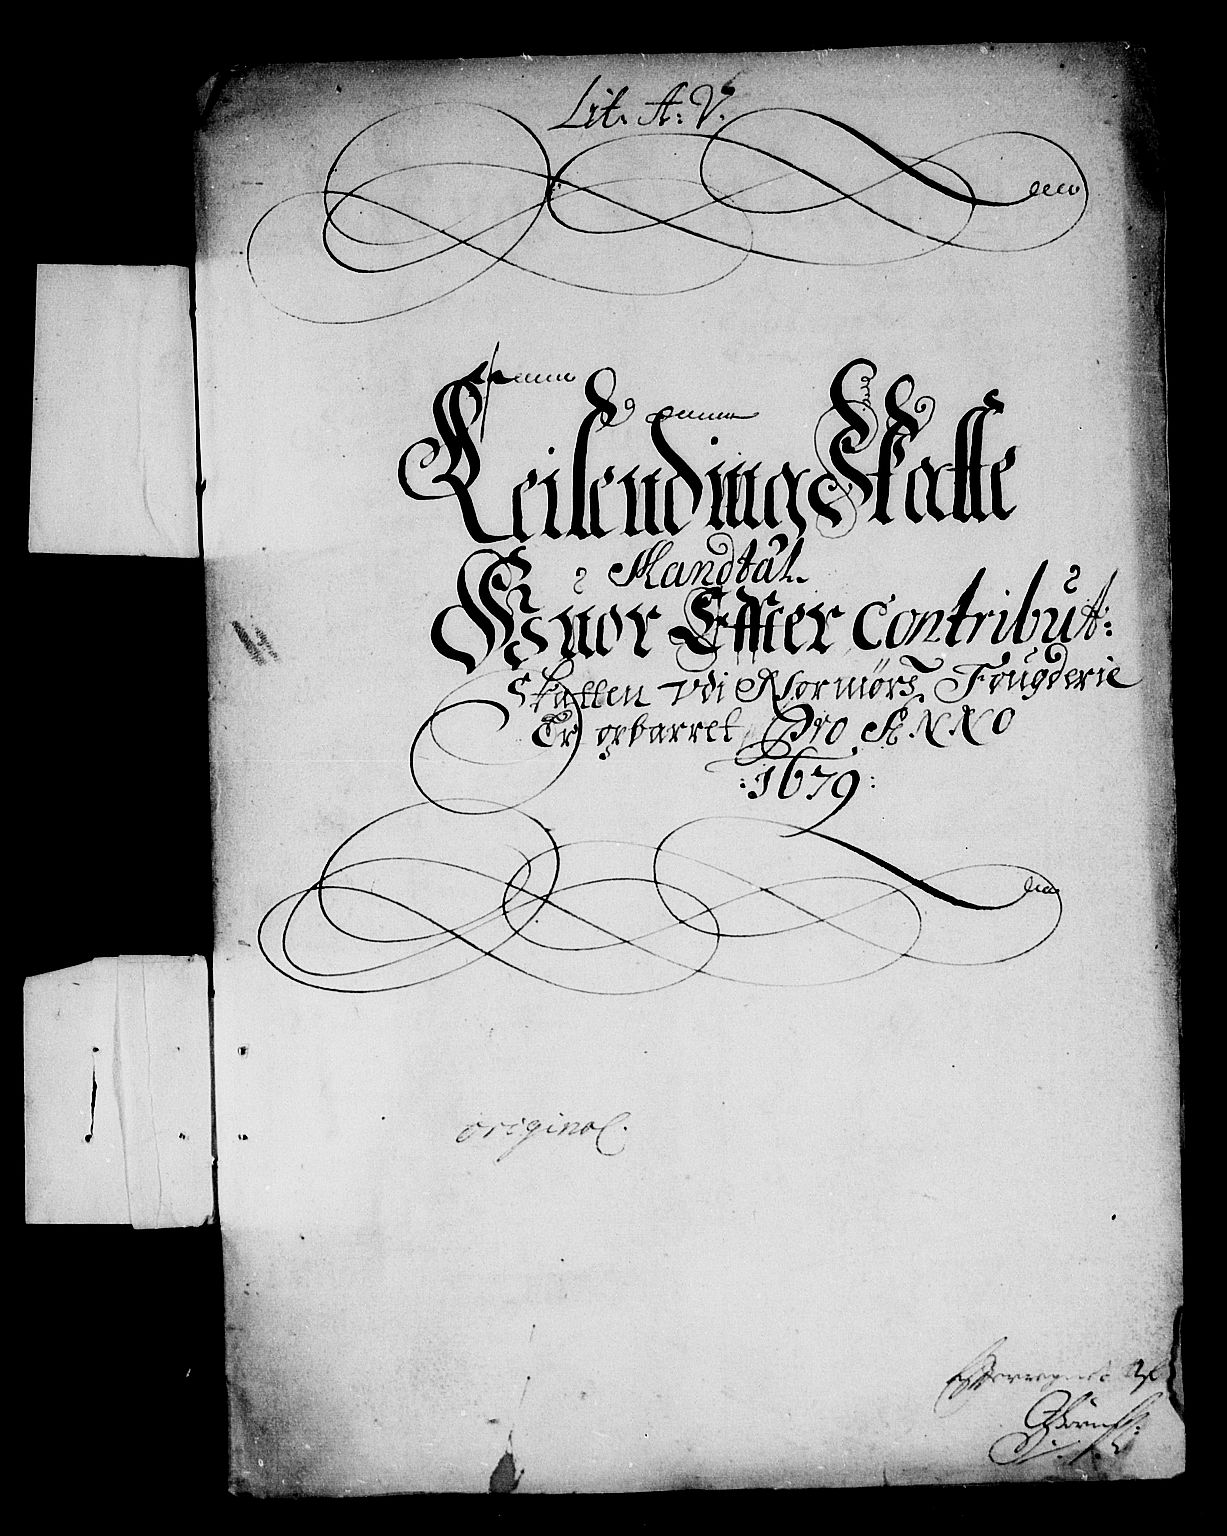 Lit. A: V.
Leilending Skatte
Mandtal.
Huor Effter Contribut:
Skatten Vdi Normørs Fougderie
Er opbarret, Pro ANNO
:1679:
original.
Efterregnet Af